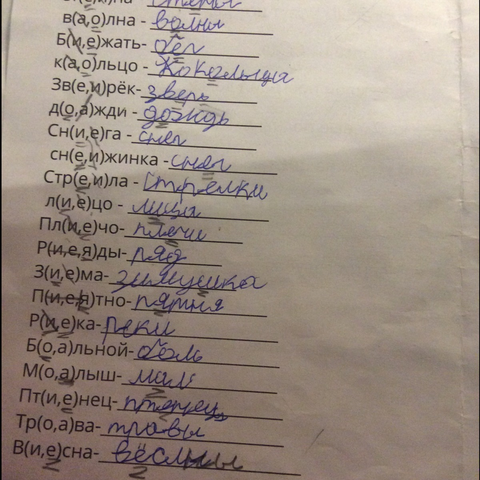 в(а,о)лна - волны
Б(и,е)жать- бег
к(а,о)льцо -
Зв(е,и)рёк- зверь
д(о,а)жди - дождь
Сн(и,е)га - снег
сн(е,и)жинка - снег
Стр(е,и)ла - Стрелки
л(и,е)цо - лица
Пл(и,е)чо- плечи
Р(и,е,я)ды- ряд
З(и,е)ма- зимушка
П(и,е,я)тно- пятна
Р(и,е)ка- реки
Б(о,а)льной- боль
М(о,а)лыш- мал
Пт(и,е)нец-
Тр(о,а)ва- травы
В(и,е)сна- вёсны